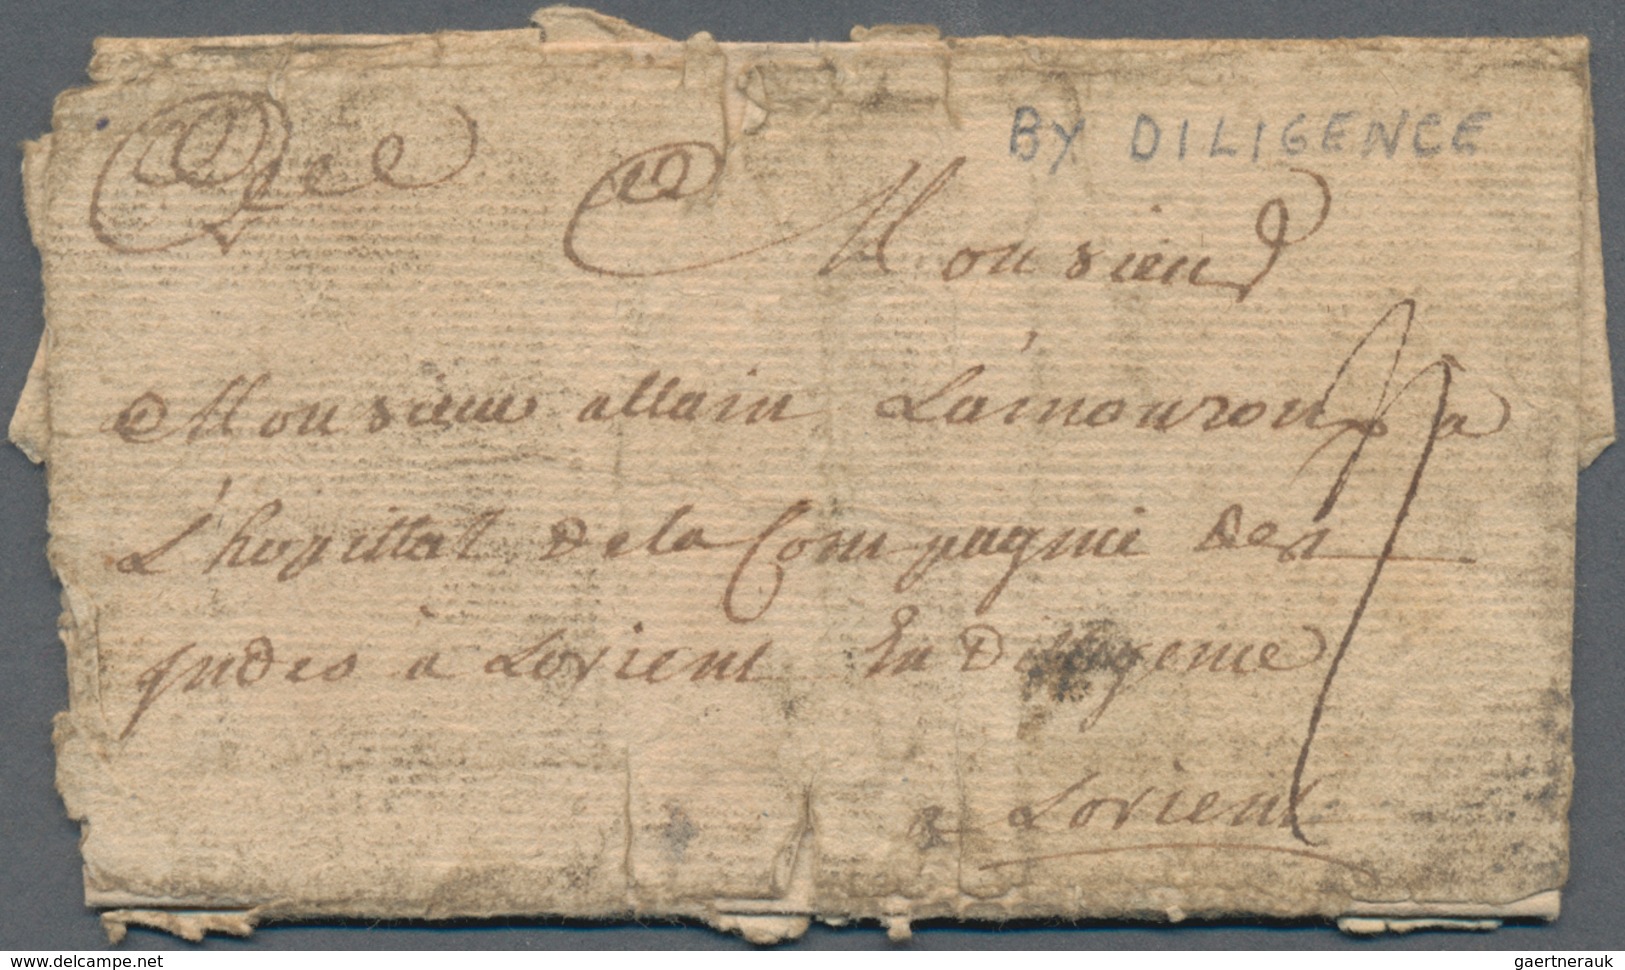 BY DILIGENCE
Monsieur
Monsieur allain Lamouroux a
L'hopittal de la Compagnie des
jndes à Lorient En Diligence
a Lorient
www.delcampe.net
gaertnerauk